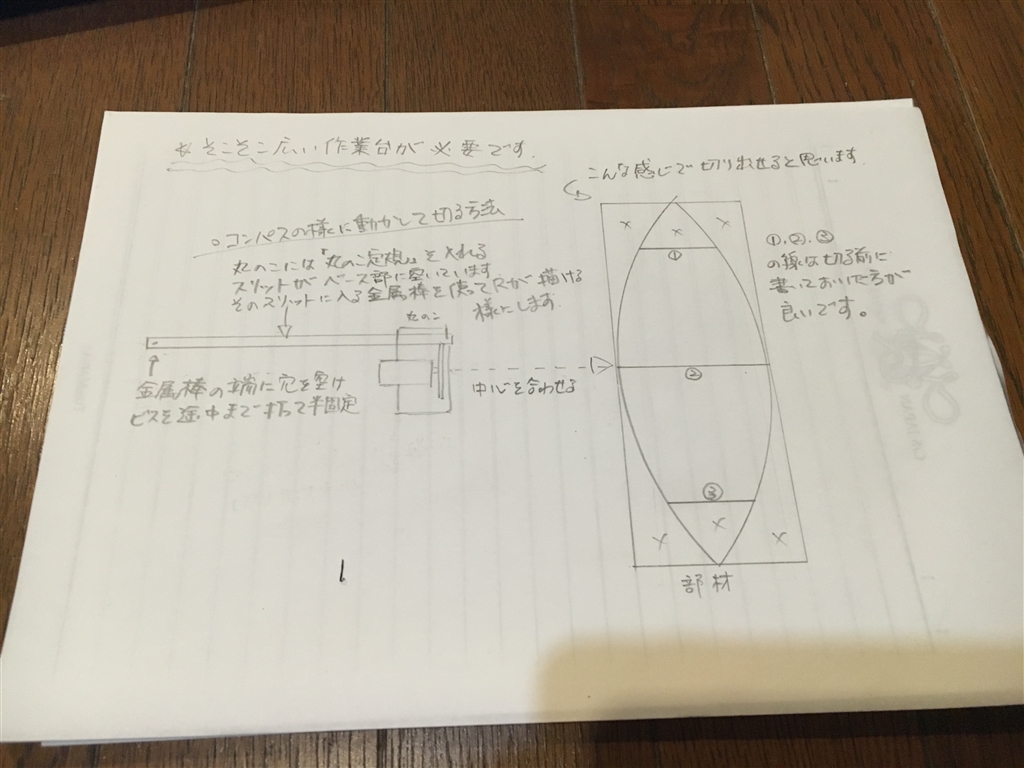 ※そこそこ広い作業台が必要です.
こんな感じで切り出せると思います.
○コンパスの様に動かして切る方法
丸のこには「丸のこ定規」を入れる
スリットがベース部に空いています
そのスリットに入る金属棒を使ってRが描ける
様にします.
丸のこ
金属棒の端に穴を空け
ビスを途中まで打って半固定
中心を合わせる
①.②.③
の線は切る前に
書いておいた方が
良いです。
×
×
×
①
②
③
×
×
×
部材
1